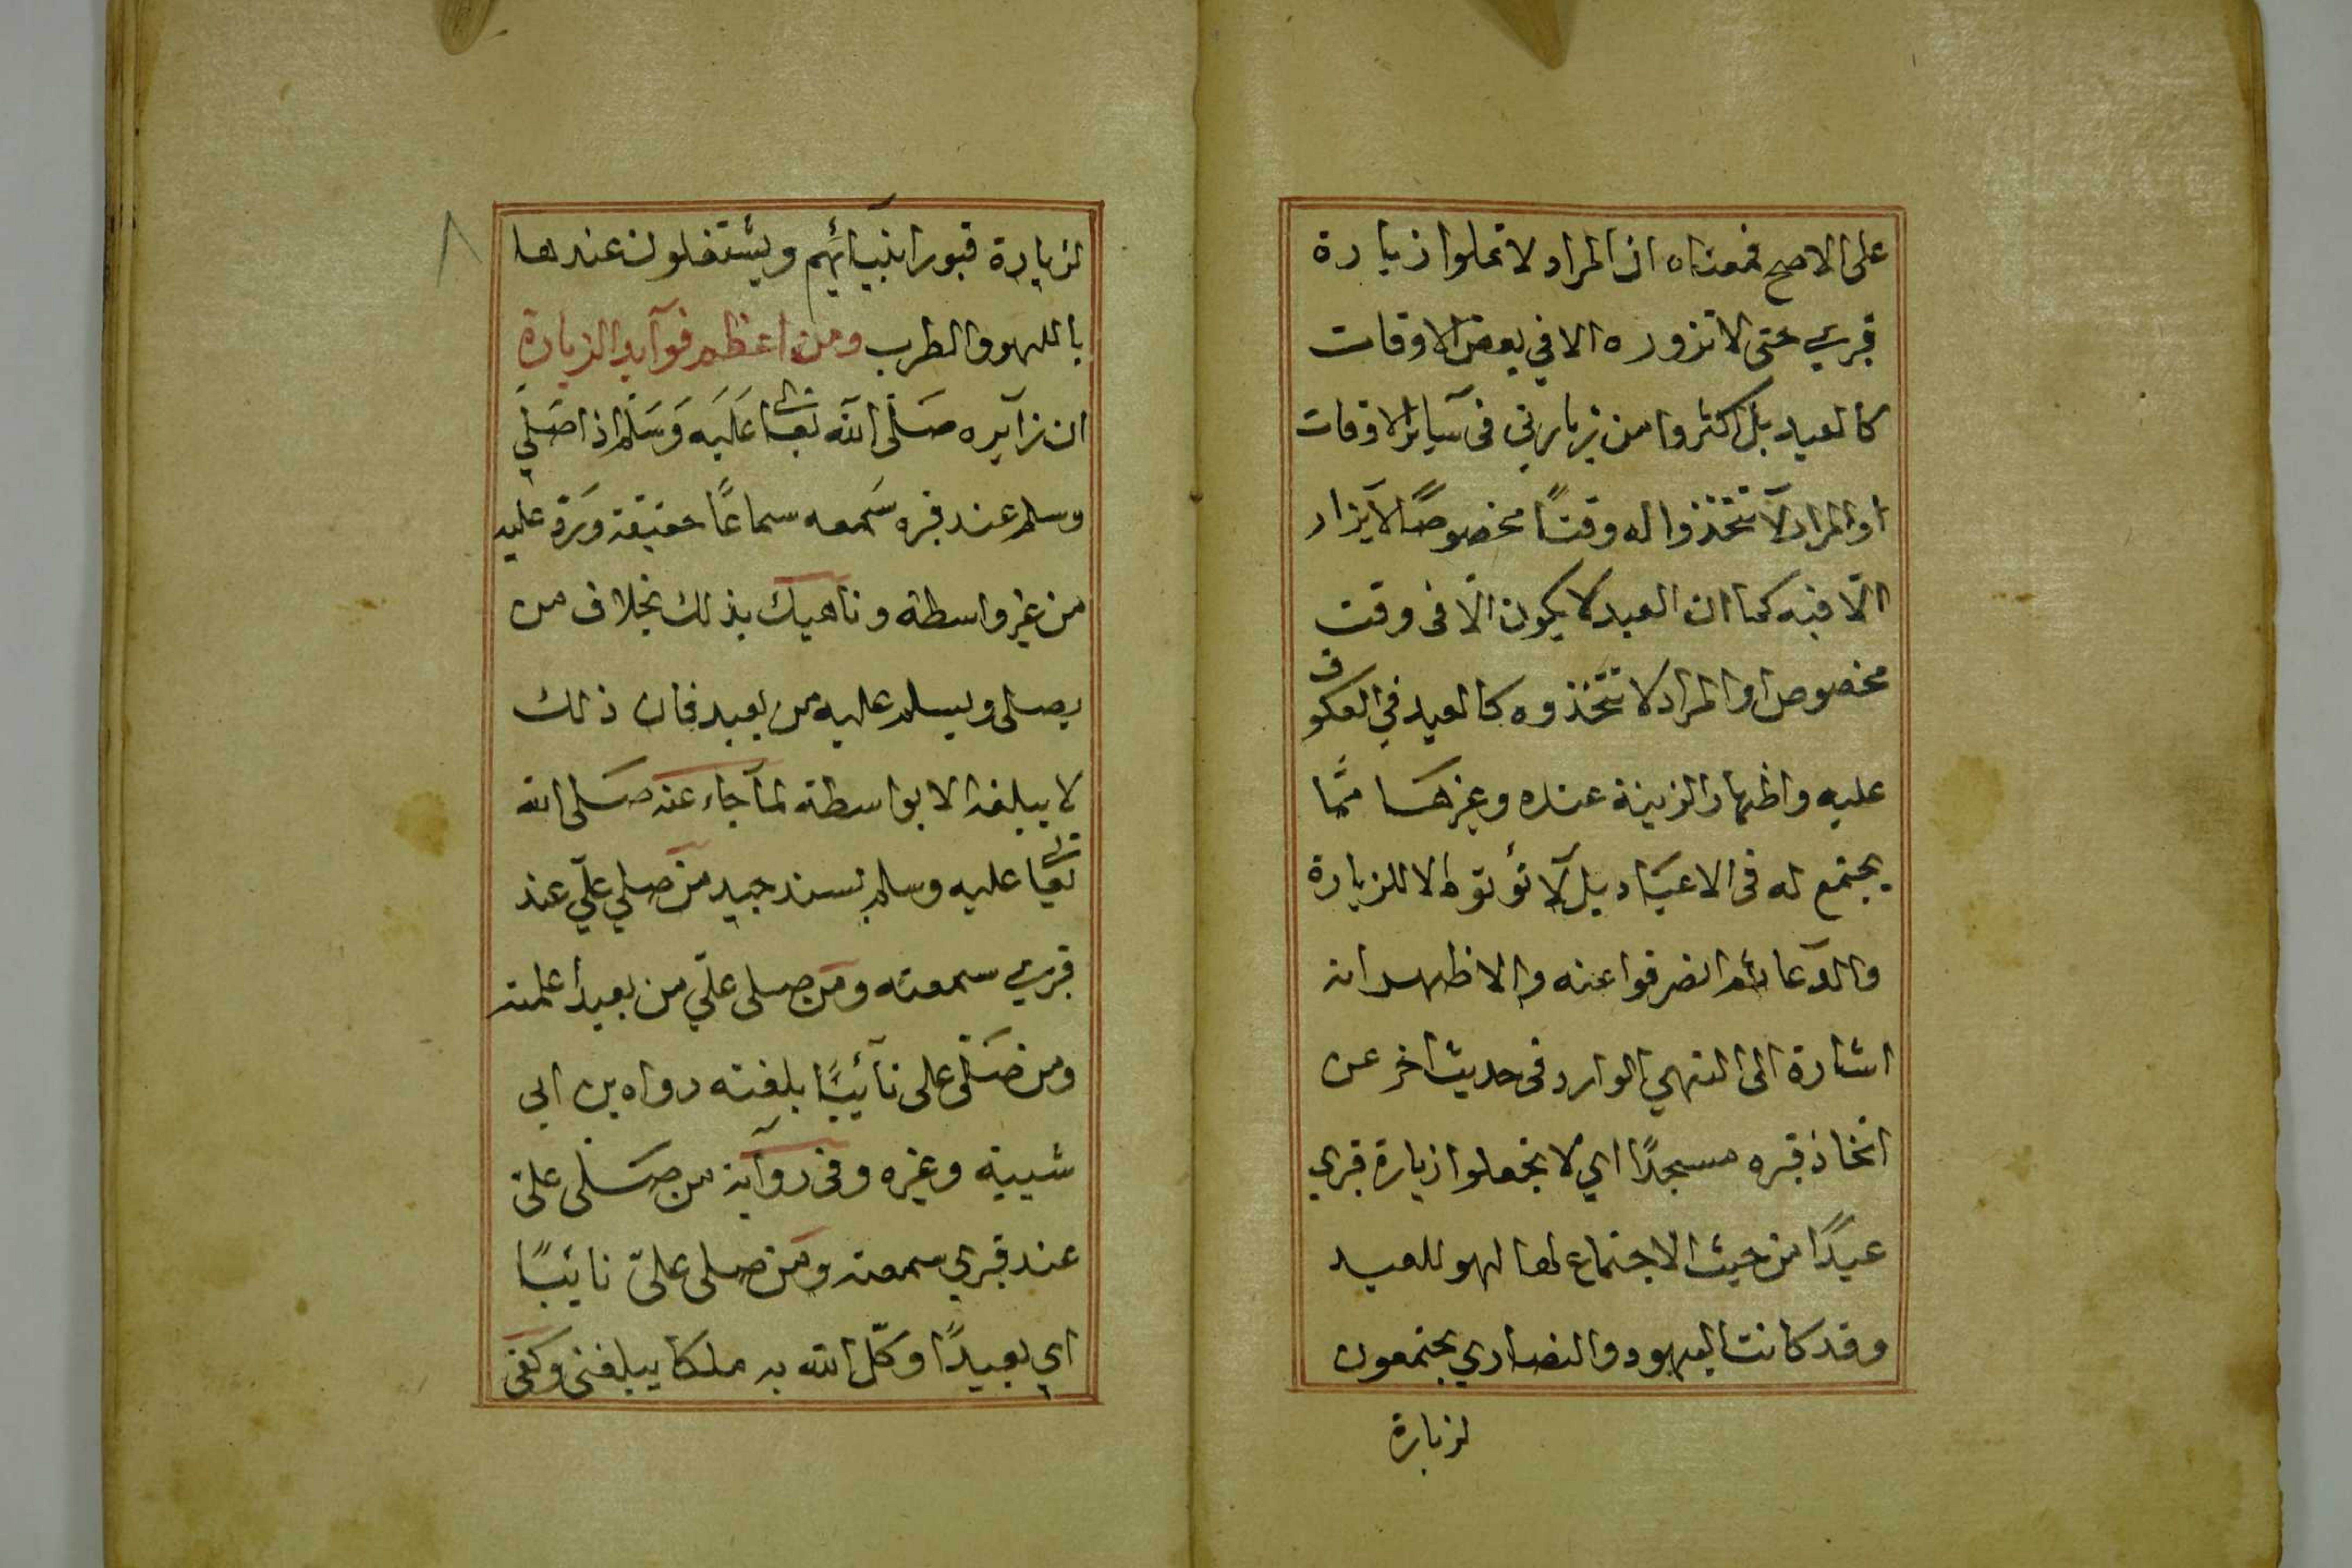 على الاصح فمعناه ان المراد لا تملوا زيارة
قبري حتى لا تزوره الا في بعض الاوقات
كالعيد بل اكثروا من زيارتي فى سآير الاوقات
او المراد لا تتخذوا له وقتًا مخصوصًا لا يزار
الّا فيه كما ان العيد لا يكون الّا فى وقت
مخصوص او المراد لا تتخذوه كالعيد في العكوف
عليه واظهار الزينة عنده وغيرها ممّا
يجتمع له فى الاعياد بل لا يؤتوه الا للزيارة
والدعا ثم انصرفوا عنه والاظهر انه
اشارة الى النهي الوارد فى حديث اخر عن
اتخاذ قبره مسجدًا اي لا تجعلوا زيارة قبري
عيدًا من حيث الاجتماع لها لهو للعيد
وقد كانت اليهود والنصاري يجتمعون
لزيارة
لزيارة قبور انبيآئهم ويشتغلون عندها
باللهو والطرب ومن اعظم فوآيد الزيارة
ان زآيره صَلّى الله تعالى عَلَيه وَسَلم اذا صَلي
وسلم عند قبره سَمعه سماعًا حقيقة ورَد عليه
من غير واسطة وناهيك بذلك بخلاف من
يصلى ويسلم عليه من بعيد فان ذلك
لا يبلغه الا بواسطة لما جاء عنه صَلى الله
تعالى عليه وسلم بسند جيد من صلي عليّ عند
قبري سمعته ومن صلى عليّ من بعيد اعلمته
ومن صَلّى على نآئيًا بلغته رواه بن ابى
شيبة وغيره وفى روآية من صَلى علىّ
عند قبري سمعته ومن صلى علىّ نائيًا
اي بعيدًا وكّل الله به ملكا يبلغنى وكفى